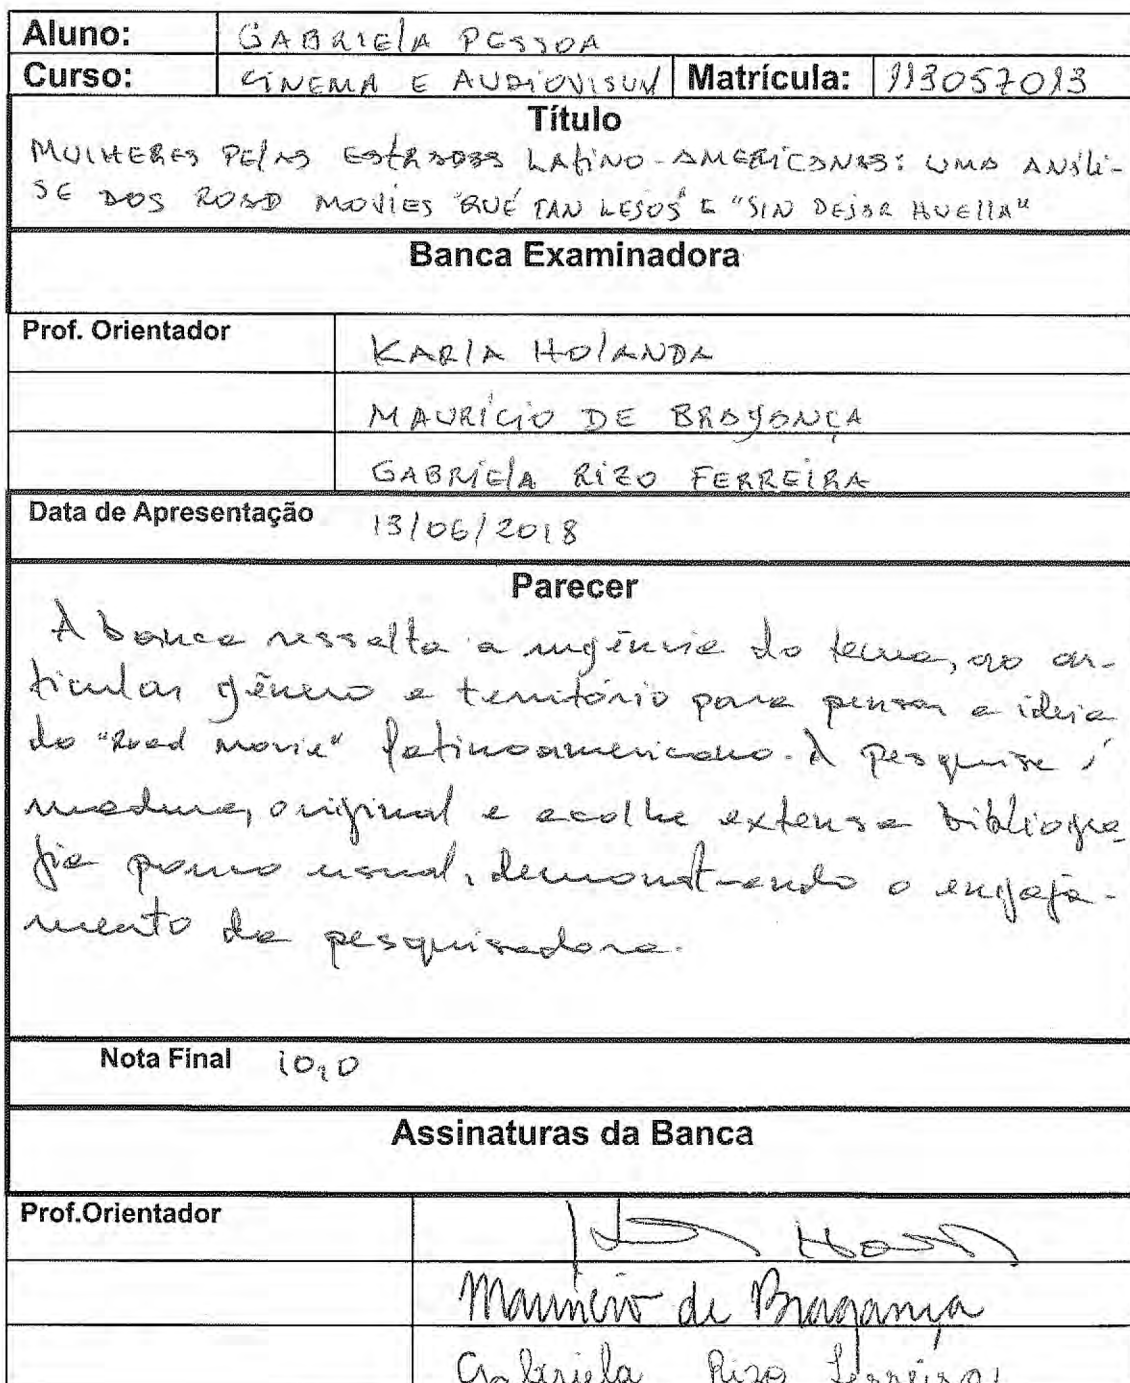 Aluno: GABRIELA PESSOA
Curso: CINEMA E AUDIOVISUAL Matrícula: 113057013
Título
MULHERES PELAS ESTRADAS LATINO-AMERICANAS: UMA ANÁLI-
SE DOS ROAD MOVIES "QUÉ TAN LEJOS" E "SIN DEJAR HUELLA"
Banca Examinadora
Prof. Orientador KARLA HOLANDA
MAURÍCIO DE BRAGANÇA
GABRIELA RIZO FERREIRA
Data de Apresentação 13/06/2018
Parecer
A banca ressalta a urgência do tema, ao ar-
ticular gênero e território para pensar a ideia
do "Road movie" latinoamericano. A pesquisa é
madura, original e acolhe extensa bibliogra
fia pouco usual, demonstrando o engaja-
mento da pesquisadora.
Nota Final 10,0
Assinaturas da Banca
Prof.Orientador
Maurício de Bragança
Gabriela Rizo Ferreira